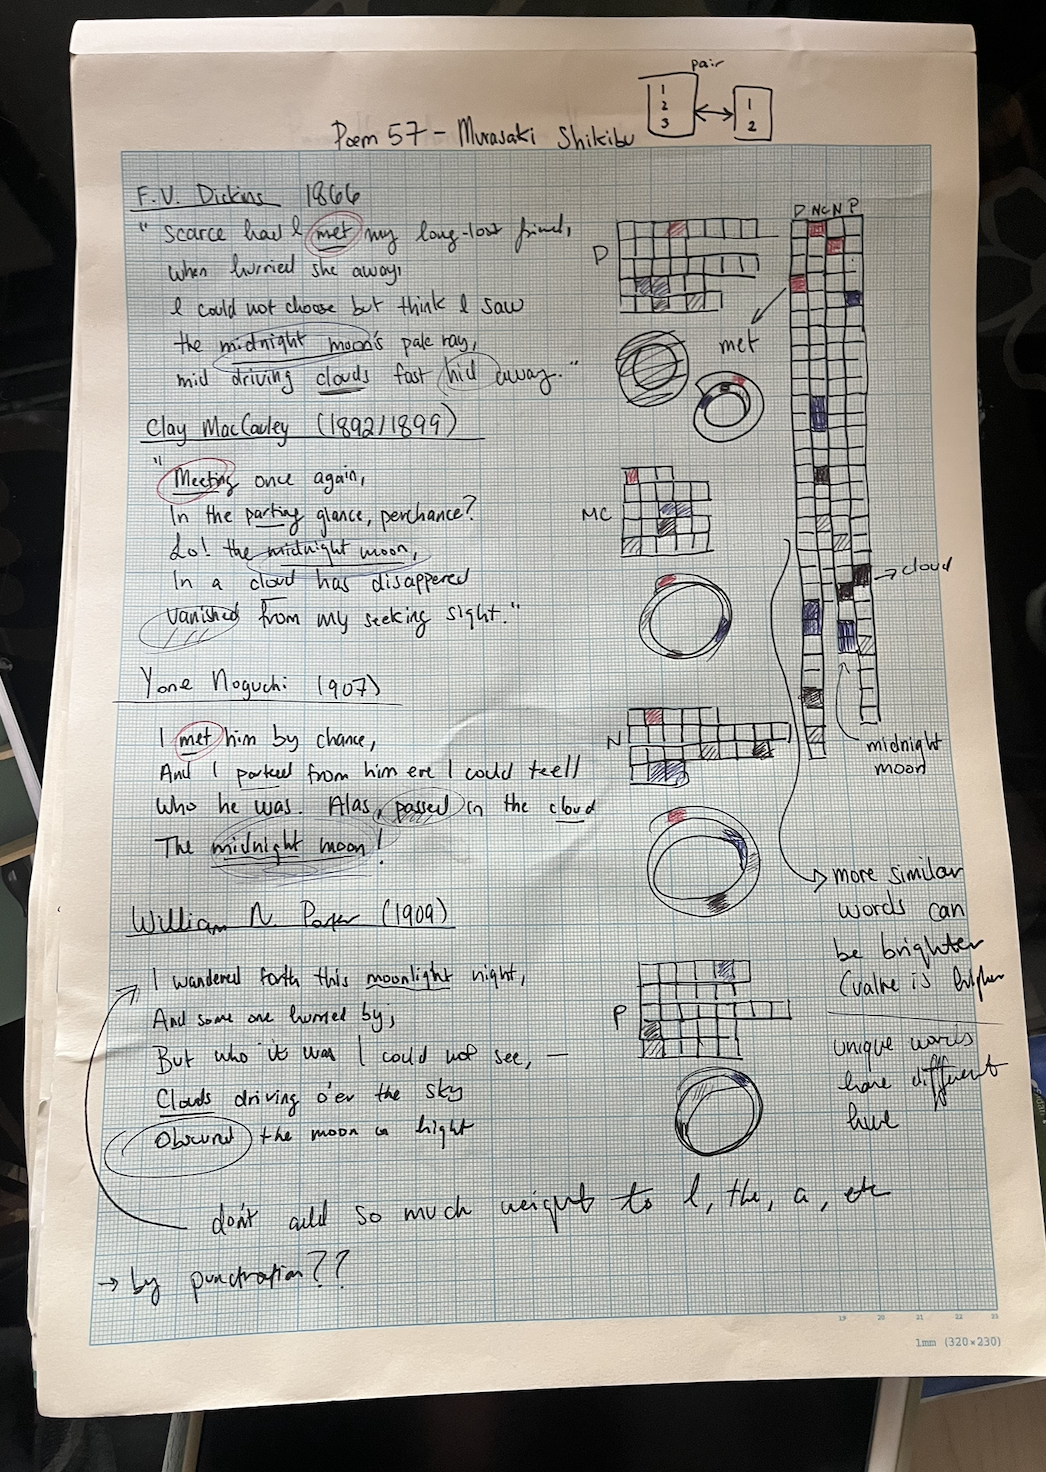 pair
1
2
3
1
2
Poem 57 - Murasaki Shikibu
F.V. Dickins 1866
"Scarce had I met my long-lost friend,
when hurried she away,
I could not choose but think I saw
the midnight moon's pale ray,
mid driving clouds fast hid away."
D
D Mc N P
met
Clay MacCauley (1892/1899)
"Meeting once again,
In the parting glance, perchance?
Lo! the midnight moon,
In a cloud has disappered
Vanished from my seeking sight."
MC
cloud
midnight
moon
Yone Noguchi (1907)
I met him by chance,
And I parted from him ere I could teell
Who he was. Alas, passed in the cloud
The midnight moon!
N
more similar
words can
be brighter
(value is higher
unique words
have different
hue
William N. Porter (1909)
I wandered forth this moonlight night,
And some one hurried by,
But who it was I could not see, —
Clouds driving o'er the sky
Obscured the moon on hight
P
don't add so much weight to I, the, a, etc
→ by punctration??
19 20 21 22 23
1mm (320×230)